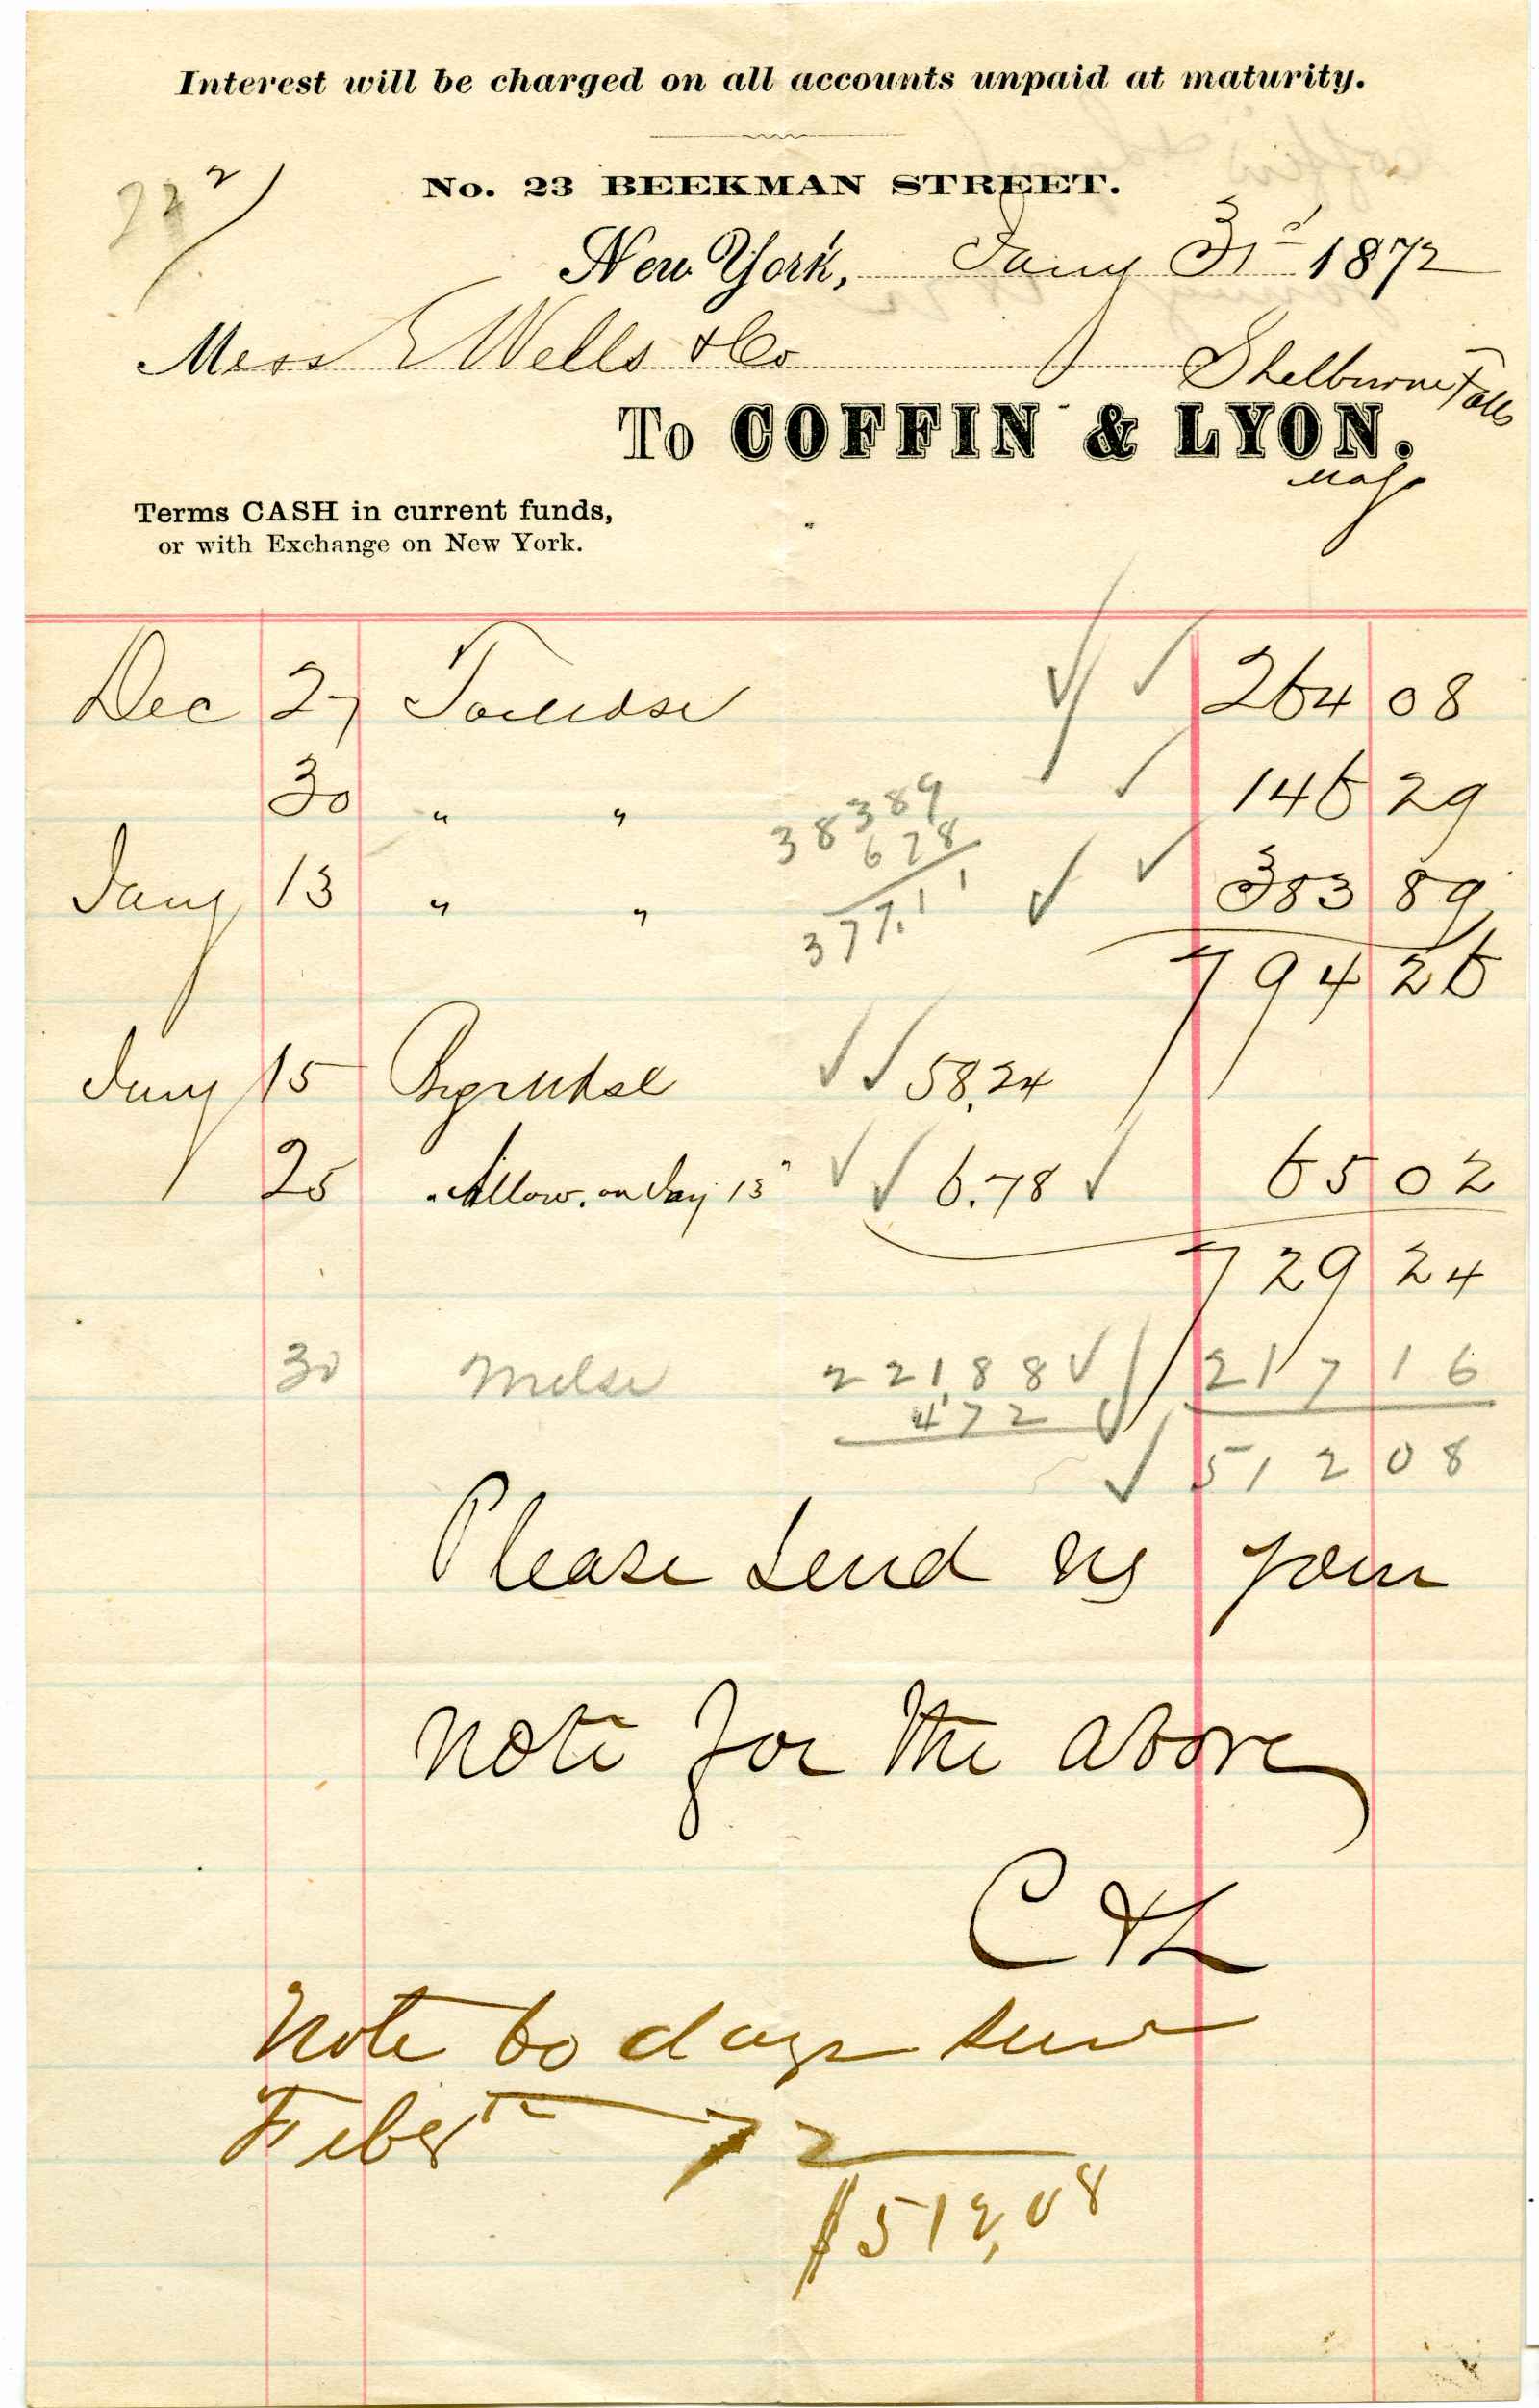 Interest will be charged on all accounts unpaid at maturity.
No. 23 BEEKMAN STREET.
New York, Jany 31st 1872
Mess E Wells & Co Shelburne Falls
To COFFIN & LYON.
Mass
Terms CASH in current funds,
or with Exchange on New York.
Dec 27 To Mdse 264 08
30 " " 146 29
38389
678
377.11
Jany 13 " " 383 89
794 26
Jany 15 By Mdse 58.24
25 " Allow. on Jany 13" 6.78 65 02
729 24
30 Mdse 221,88 217 16
472
512 08
Please send us your
note for the above
C & L
Note 60 days
Feby 72
$512,08